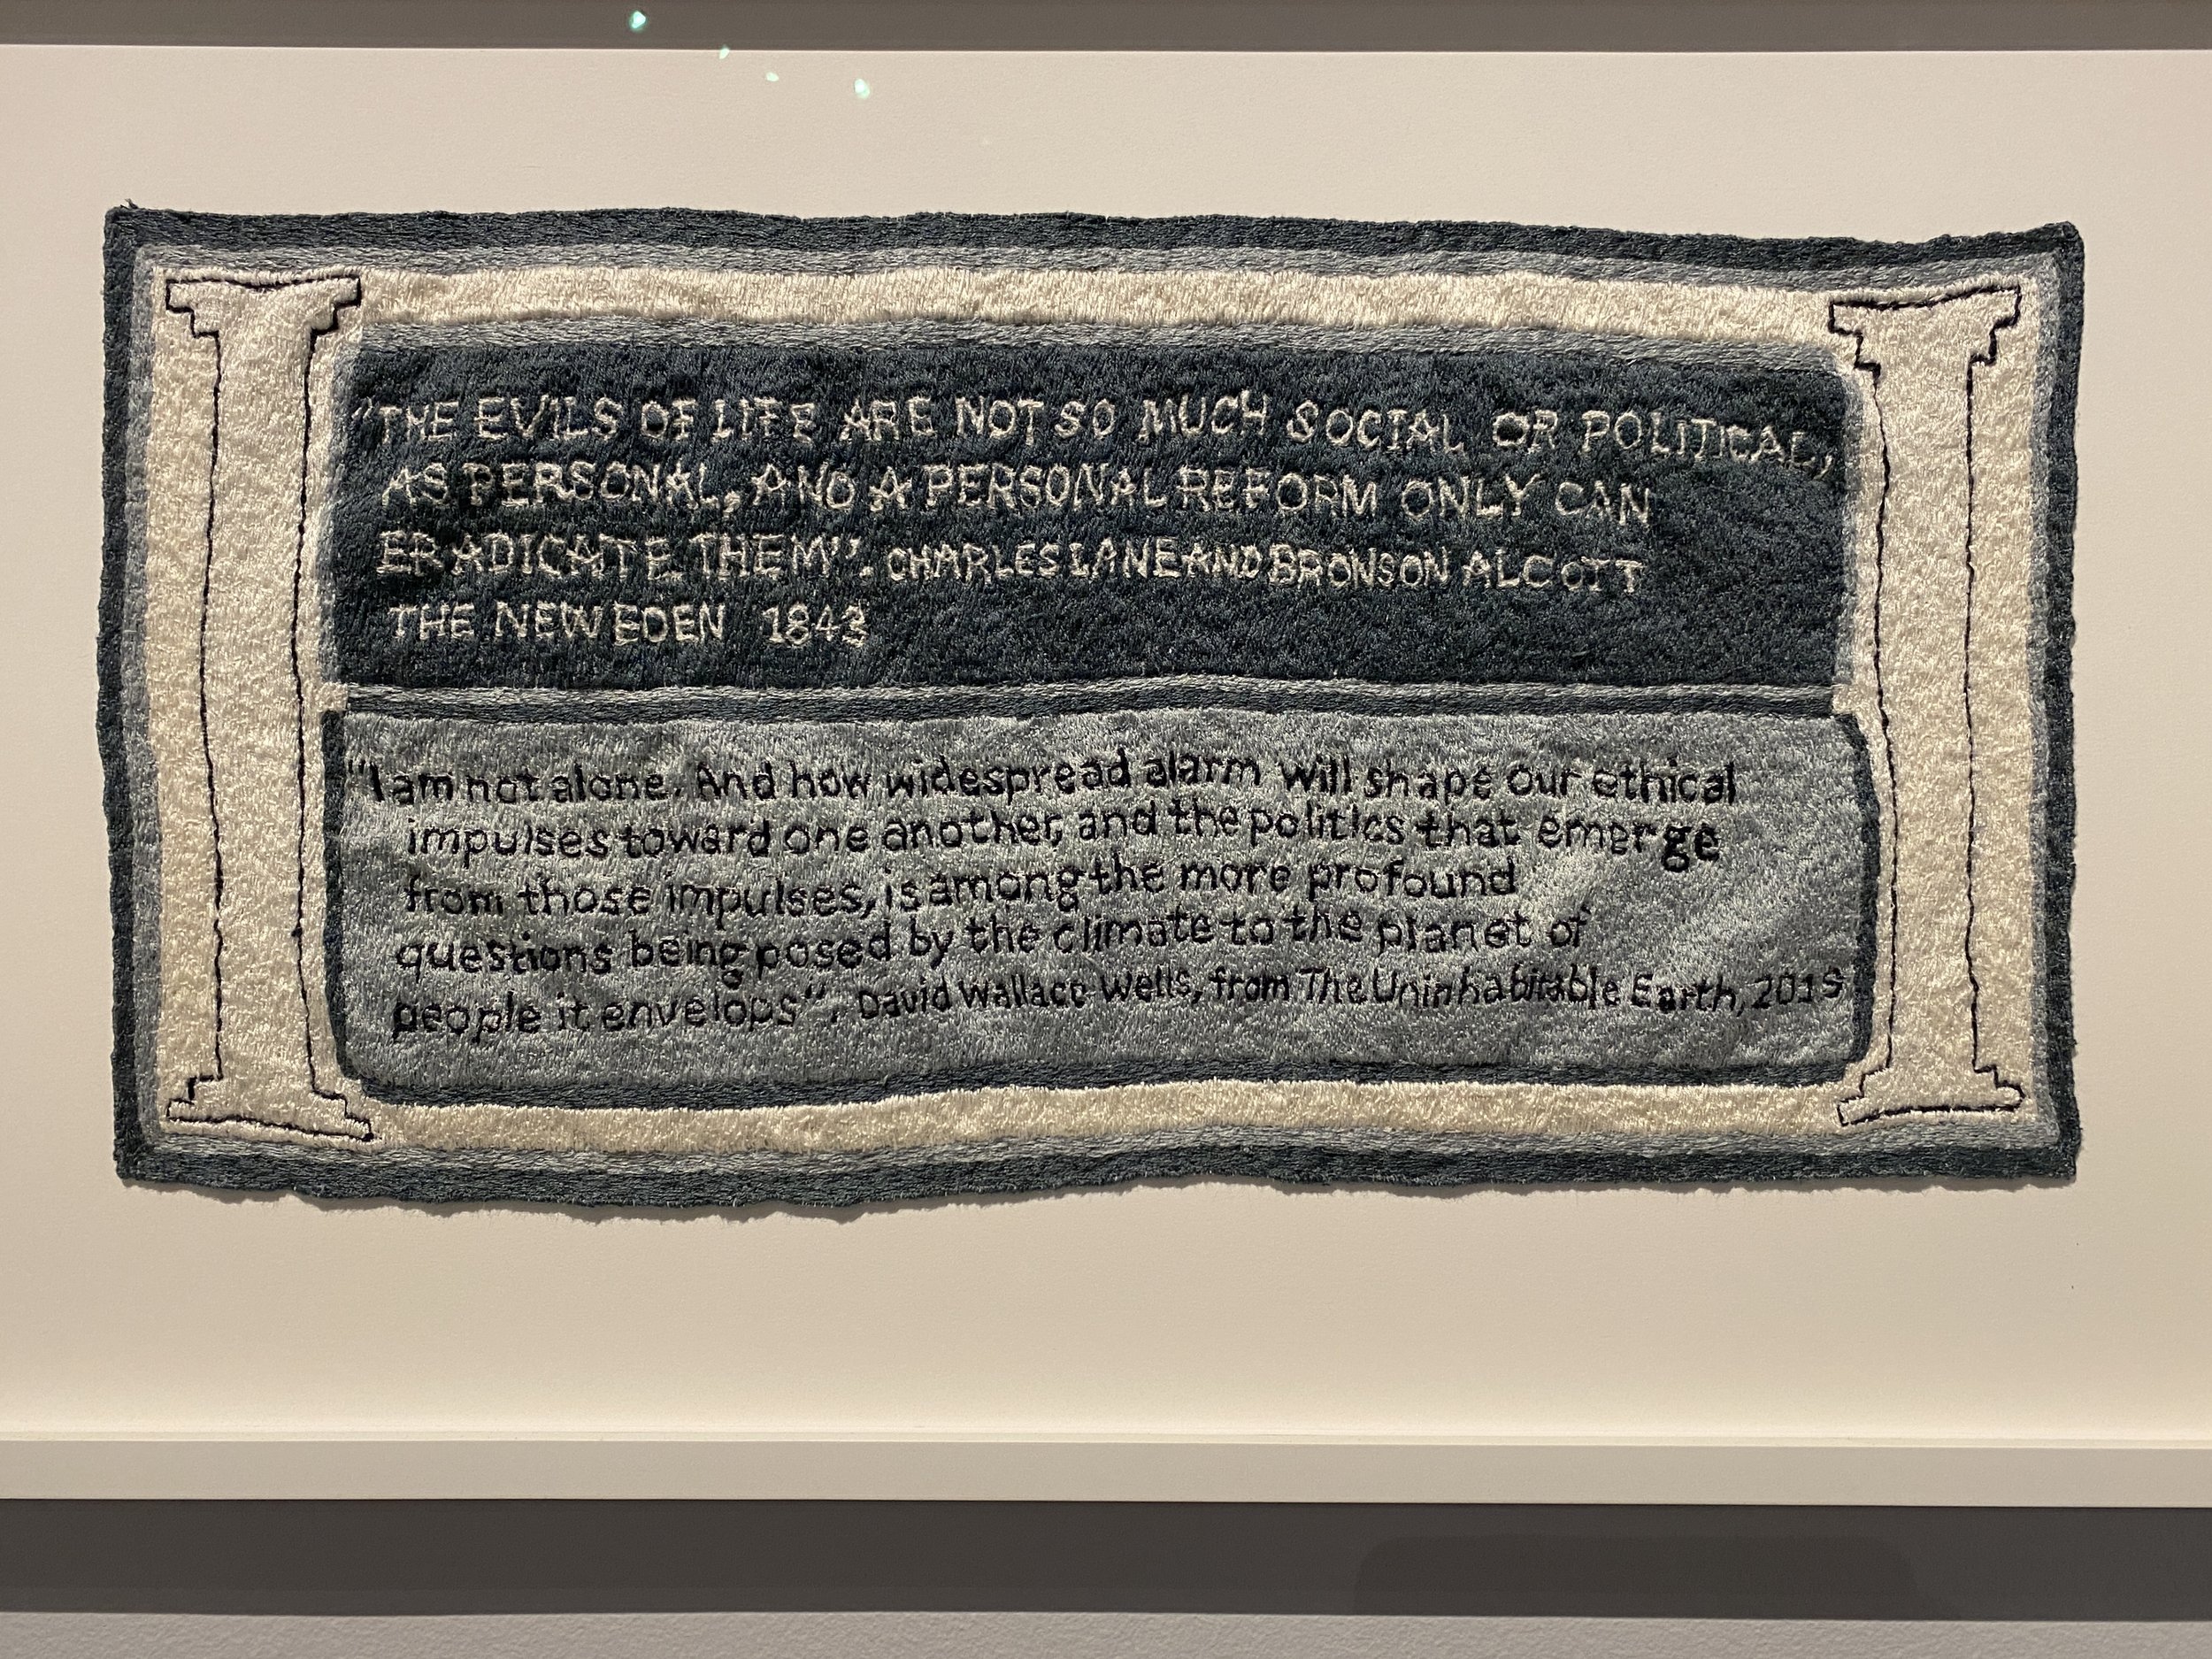 "THE EVILS OF LIFE ARE NOT SO MUCH SOCIAL OR POLITICAL,
AS PERSONAL, AND A PERSONAL REFORM ONLY CAN
ERADICATE THEM". CHARLES LANE AND BRONSON ALCOTT
THE NEW EDEN 1843
"I am not alone. And how widespread alarm will shape our ethical
impulses toward one another, and the politics that emerge
from those impulses, is among the more profound
questions being posed by the climate to the planet of
people it envelops". David Wallace Wells, from The Uninhabitable Earth, 2019